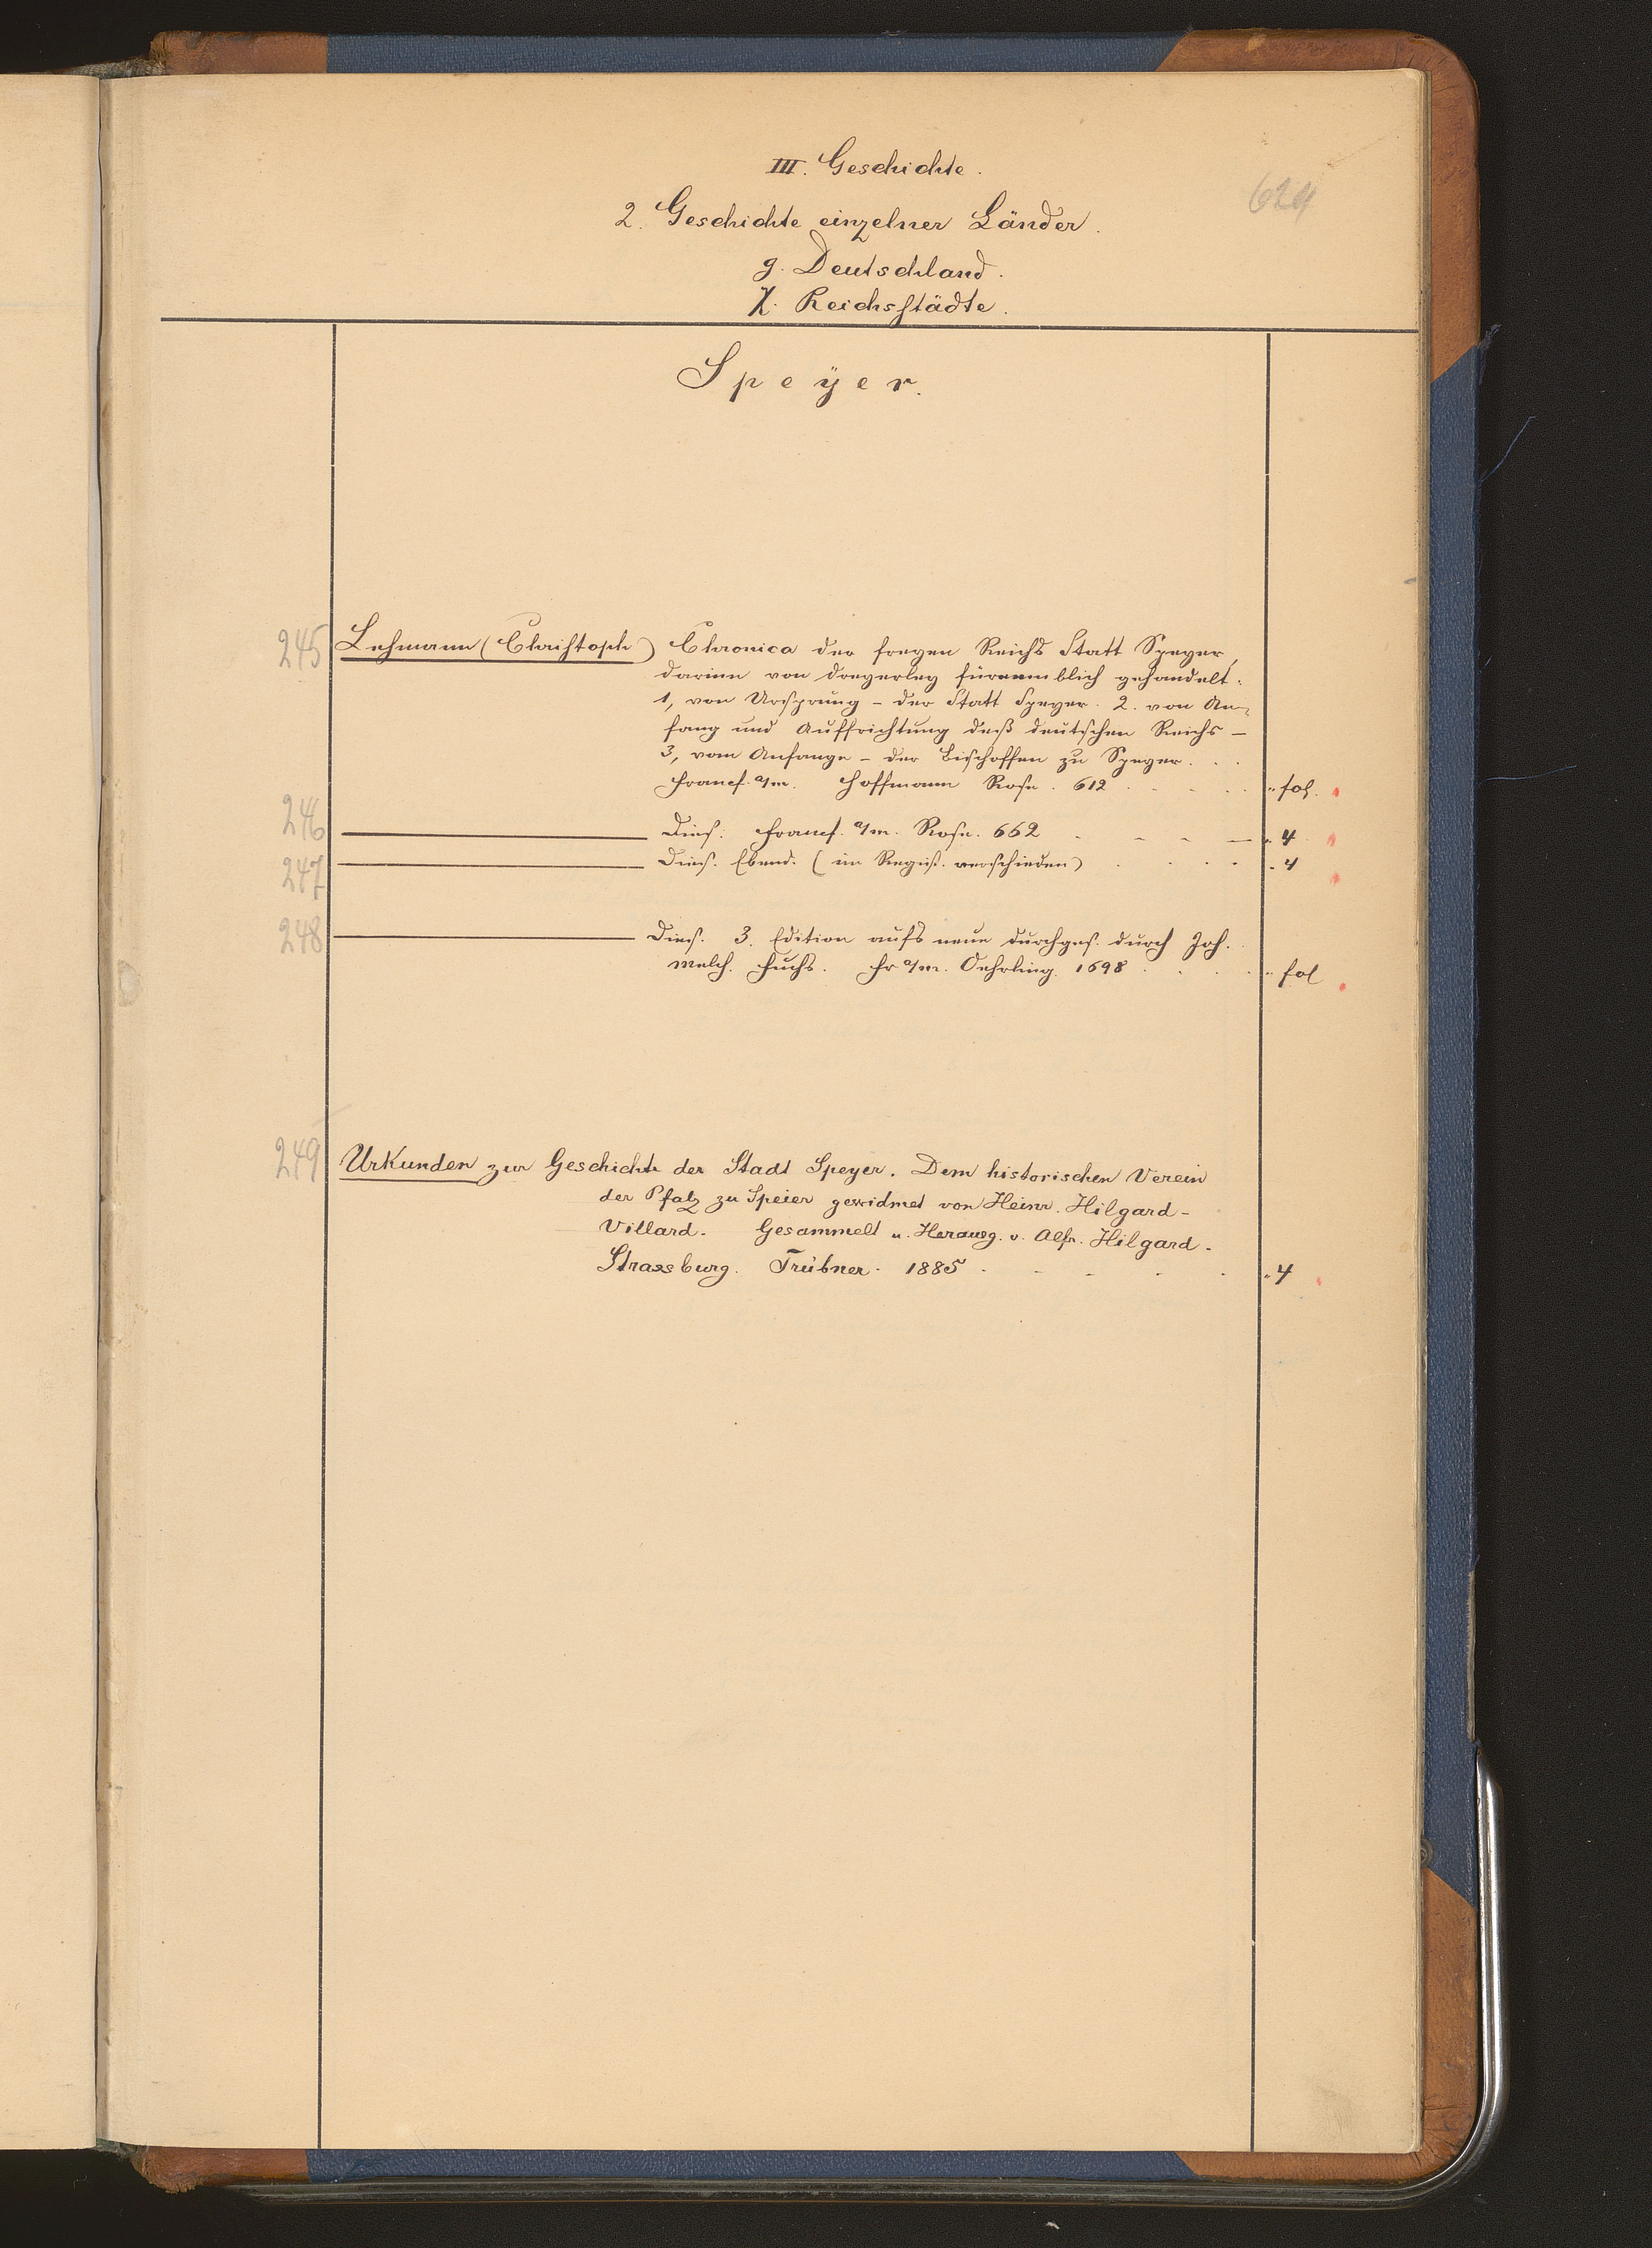 III. Geschichte.
624
2. Geschichte einzelner Länder.
g. Deutschland.
χ. Reichsstädte.
Speÿer.
245 Lehmann (Christoph) Chronica der freyen Reichs Statt Speyer,
darinn von dreyerley fürnemblich gehandelt:
1, von Ursprung – der Statt Speyer. 2. von An-
fang und Auffrichtung deß deutschen Reichs –
3, vom Anfange – der Bischoffen zu Speyer. . .
Francf. a/m. Hoffmann Rose. 612 . . . . . " fol.
246 Dies. Francf. a/m. Rose. 662 . – – – – " 4
247 Dies. Ebend. (im Regist. verschieden) . . . . " 4
248 Dies. 3. Edition aufs neue durchges. durch Joh.
Melch. Fuchs. Fr a/m. Oehrling. 1698 . . . . " fol
249 Urkunden zur Geschichte der Stadt Speyer. Dem historischen Verein
der Pfalz zu Speier gewidmet von Heinr. Hilgard-
Villard. Gesammelt u. Herausg. v. Alfr. Hilgard.
Strassburg. Trübner. 1885 . . . . . " 4